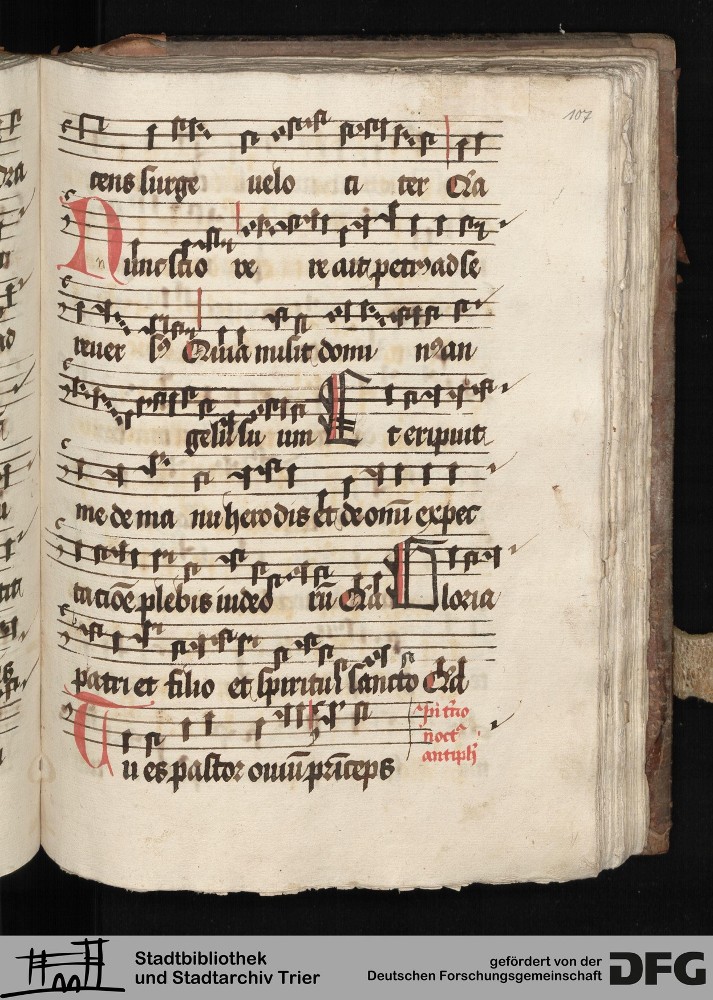 107
cens surge velo ci ter Q̄ra
Nunc scio ve re ait petrꝰ ad se
rever sꝰ Quia misit domi nꝰ an
gelū su um Et eripuit
me de ma nu herodis et de omī expec
tacioē plebis iudeo rū Q̄ra Gloria
patri et filio et spiritui sancto Q̄ra
Tu es pastor oviū prīceps
In t̄cio
noct̄
antiph̄
Stadtbibliothek
und Stadtarchiv Trier
gefördert von der
Deutschen Forschungsgemeinschaft
DFG